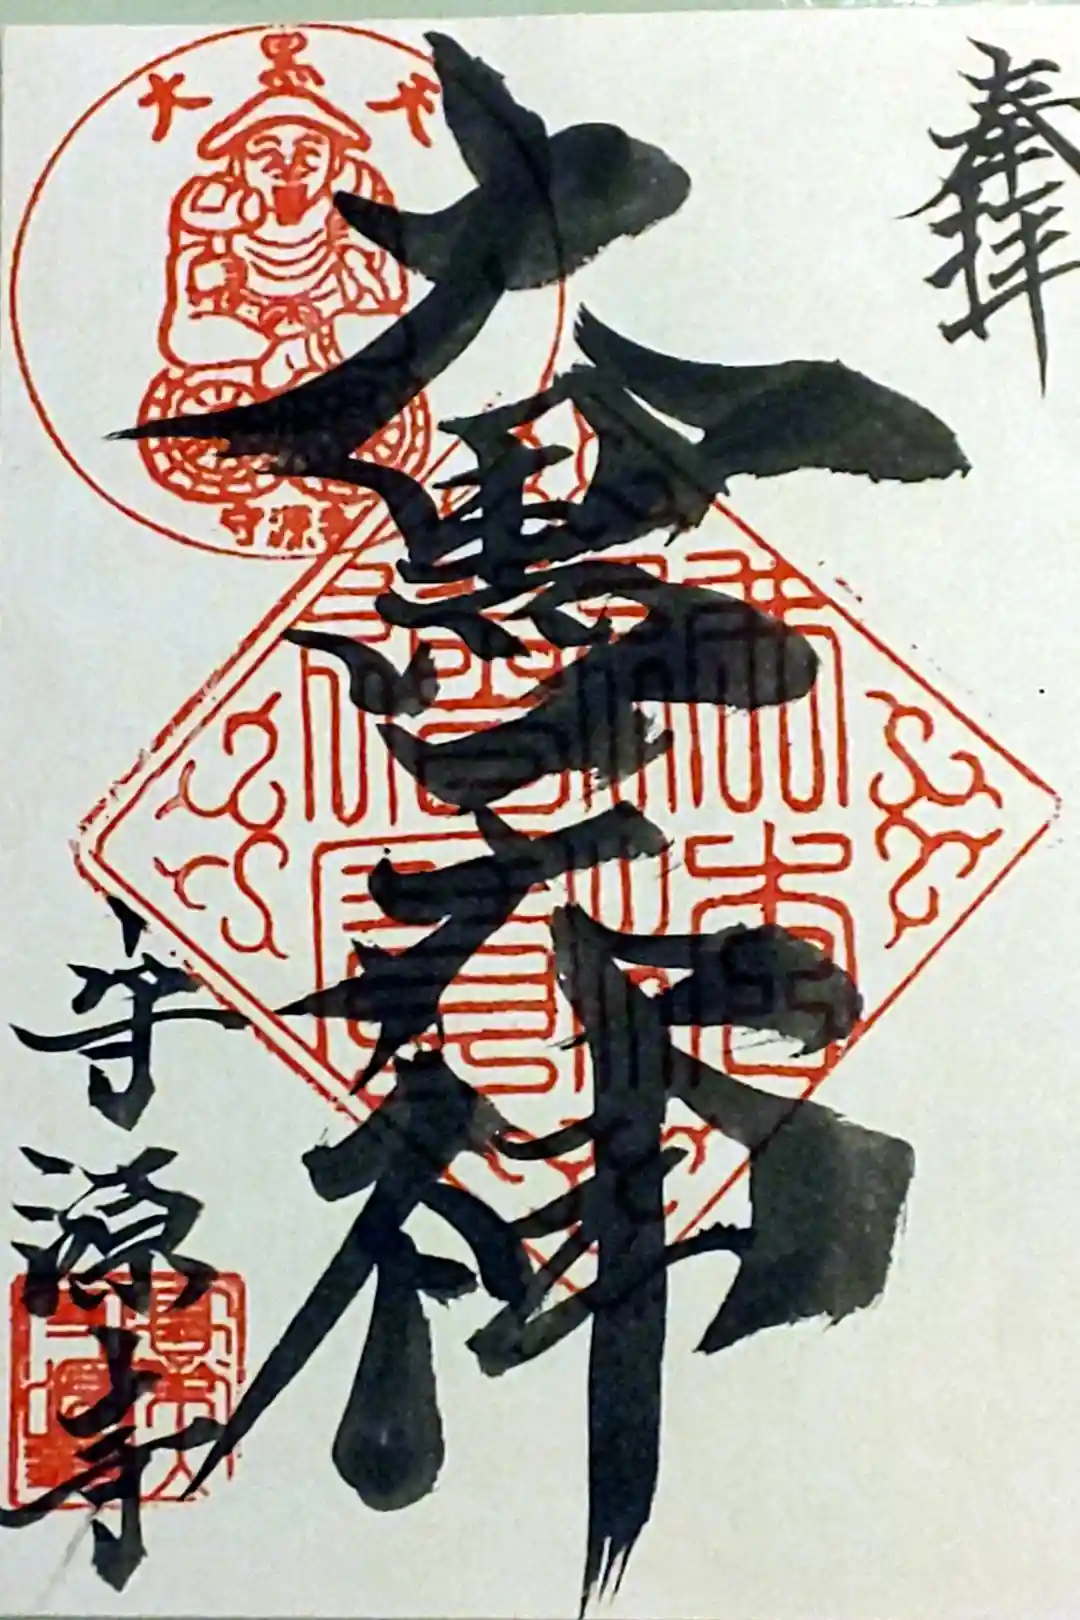 奉拝
大黒天
守源寺
大黒天神
守源寺